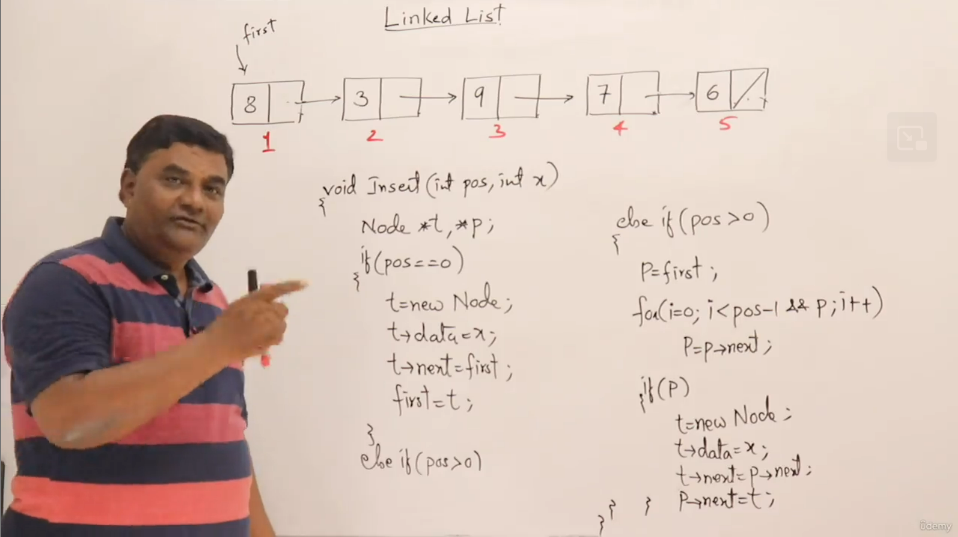 Linked List
first
8 3 9 7 6
1 2 3 4 5
void Insert(int pos, int x)
{
Node *t, *p;
if(pos==0)
{
t=new Node;
t→data=x;
t→next=first;
first=t;
}
else if(pos>0)
else if(pos>0)
{
P=first;
for(i=0; i<pos-1 && p; i++)
P=p→next;
if(P)
{
t=new Node;
t→data=x;
t→next=P→next;
P→next=t;
} } }
ûdemy